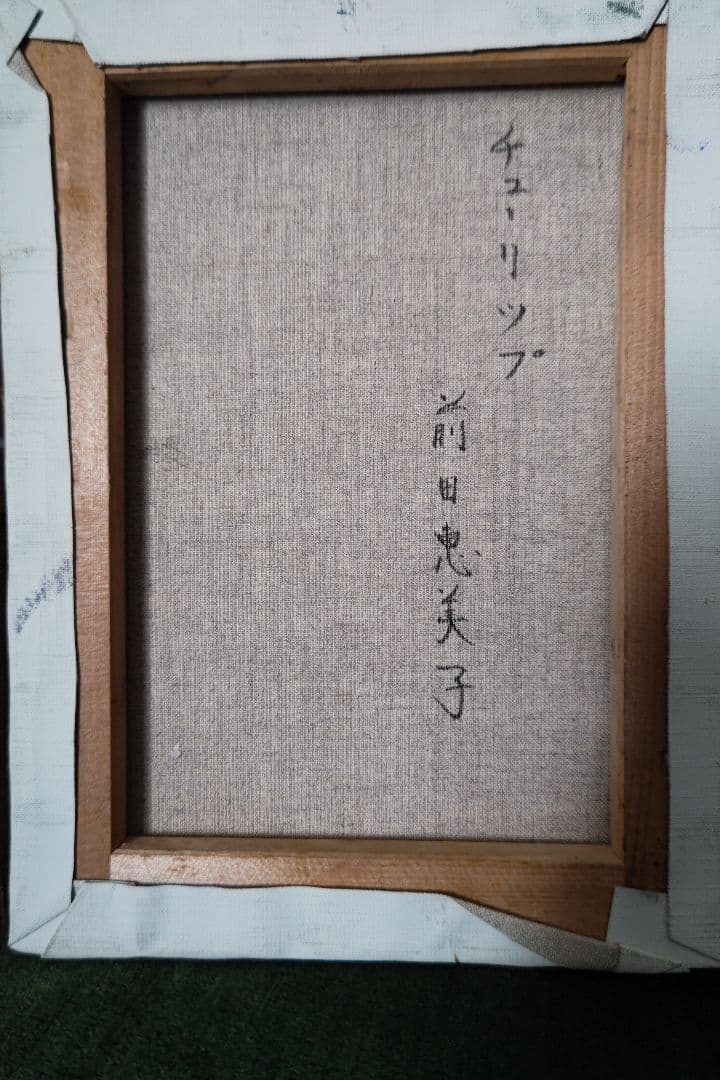 チューリップ
前田恵美子